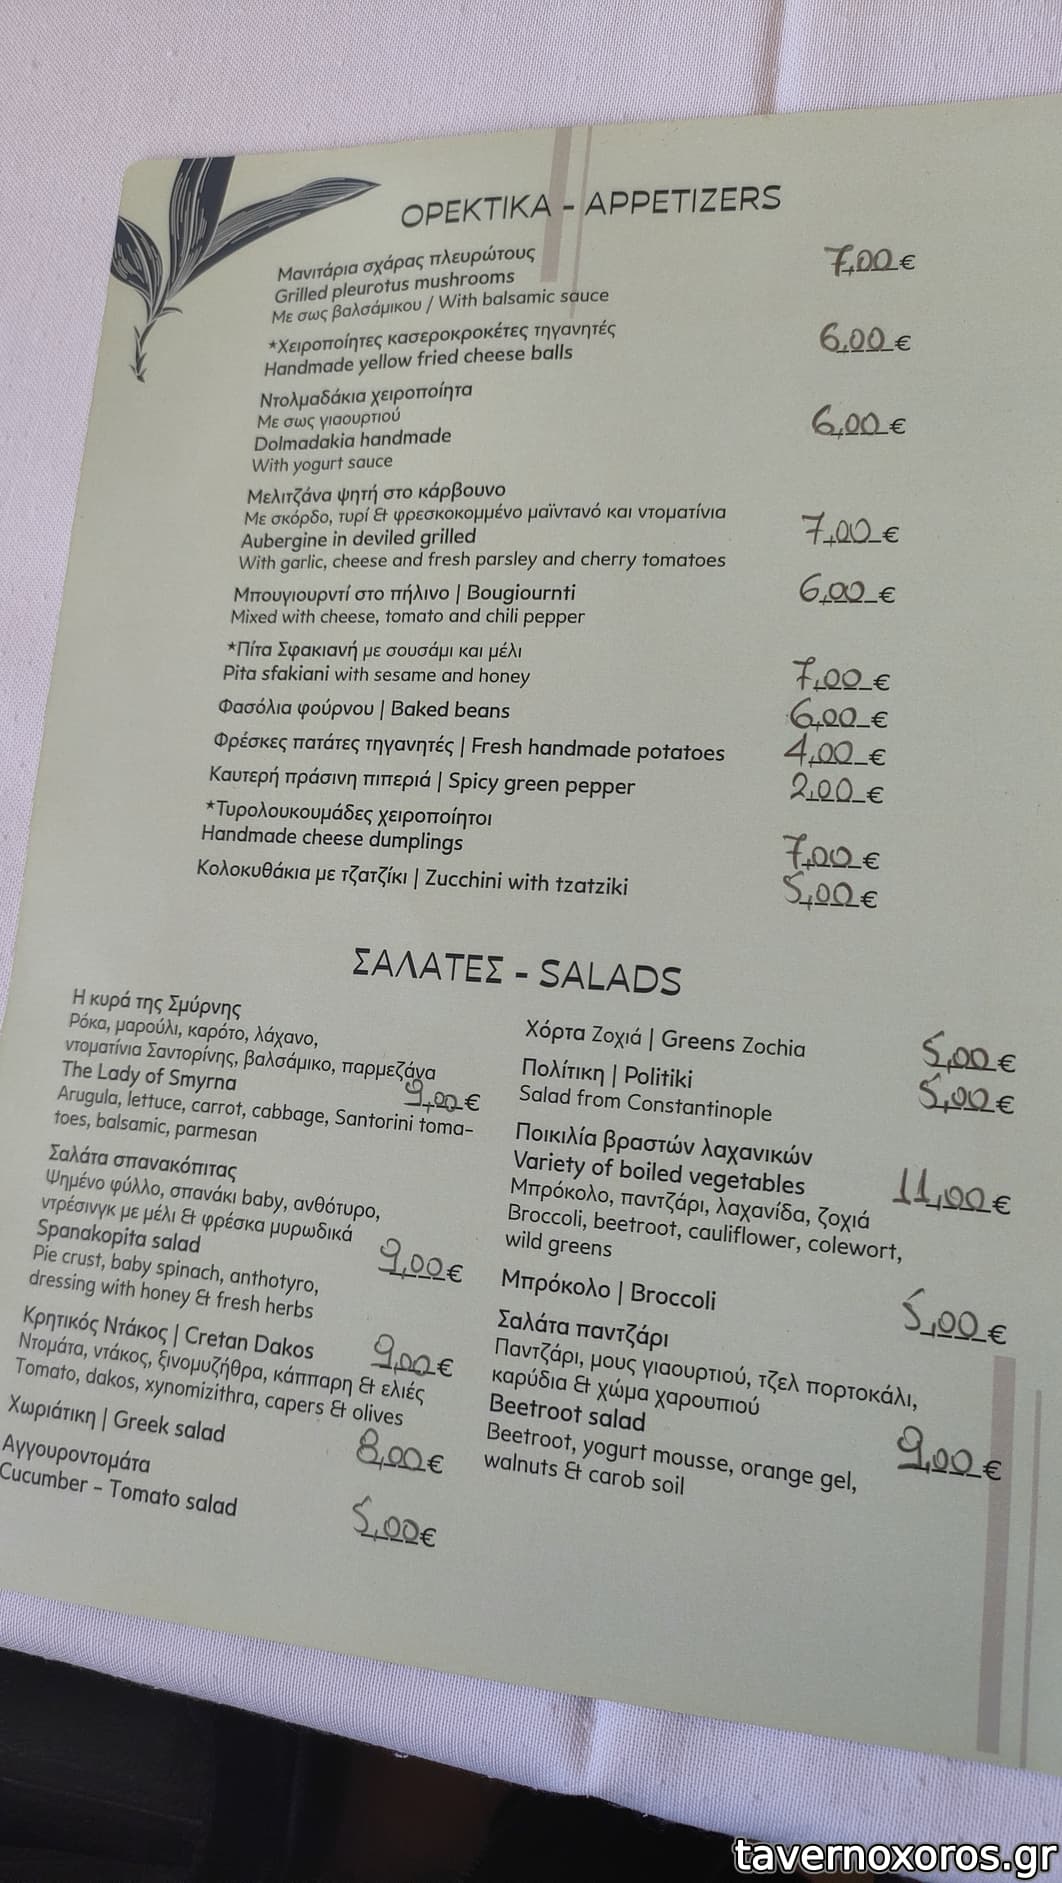 ΟΡΕΚΤΙΚΑ - APPETIZERS
Μανιτάρια σχάρας πλευρώτους
Grilled pleurotus mushrooms
7,00 €
Με σως βαλσάμικου / With balsamic sauce
*Χειροποίητες κασεροκροκέτες τηγανητές
Handmade yellow fried cheese balls
6,00 €
Ντολμαδάκια χειροποίητα
Με σως γιαουρτιού
Dolmadakia handmade
6,00 €
With yogurt sauce
Μελιτζάνα ψητή στο κάρβουνο
Με σκόρδο, τυρί & φρεσκοκομμένο μαϊντανό και ντοματίνια
Aubergine in deviled grilled
7,00 €
With garlic, cheese and fresh parsley and cherry tomatoes
Μπουγιουρντί στο πήλινο | Bougiournti
6,00 €
Mixed with cheese, tomato and chili pepper
*Πίτα Σφακιανή με σουσάμι και μέλι
Pita sfakiani with sesame and honey
7,00 €
Φασόλια φούρνου | Baked beans
6,00 €
Φρέσκες πατάτες τηγανητές | Fresh handmade potatoes
4,00 €
Καυτερή πράσινη πιπεριά | Spicy green pepper
2,00 €
*Τυρολουκουμάδες χειροποίητοι
Handmade cheese dumplings
7,00 €
Κολοκυθάκια με τζατζίκι | Zucchini with tzatziki
5,00 €
ΣΑΛΑΤΕΣ - SALADS
Η κυρά της Σμύρνης
Ρόκα, μαρούλι, καρότο, λάχανο,
ντοματίνια Σαντορίνης, βαλσάμικο, παρμεζάνα
The Lady of Smyrna
9,00 €
Arugula, lettuce, carrot, cabbage, Santorini toma-
toes, balsamic, parmesan
Σαλάτα σπανακόπιτας
Ψημένο φύλλο, σπανάκι baby, ανθότυρο,
ντρέσινγκ με μέλι & φρέσκα μυρωδικά
Spanakopita salad
9,00 €
Pie crust, baby spinach, anthotyro,
dressing with honey & fresh herbs
Κρητικός Ντάκος | Cretan Dakos
9,00 €
Ντομάτα, ντάκος, ξινομυζήθρα, κάππαρη & ελιές
Tomato, dakos, xynomizithra, capers & olives
Χωριάτικη | Greek salad
8,00 €
Αγγουροντομάτα
Cucumber - Tomato salad
5,00 €
Χόρτα Ζοχιά | Greens Zochia
5,00 €
Πολίτικη | Politiki
5,00 €
Salad from Constantinople
Ποικιλία βραστών λαχανικών
Variety of boiled vegetables
11,00 €
Μπρόκολο, παντζάρι, λαχανίδα, ζοχιά
Broccoli, beetroot, cauliflower, colewort,
wild greens
Μπρόκολο | Broccoli
5,00 €
Σαλάτα παντζάρι
Παντζάρι, μους γιαουρτιού, τζελ πορτοκάλι,
καρύδια & χώμα χαρουπιού
Beetroot salad
9,00 €
Beetroot, yogurt mousse, orange gel,
walnuts & carob soil
tavernoxoros.gr